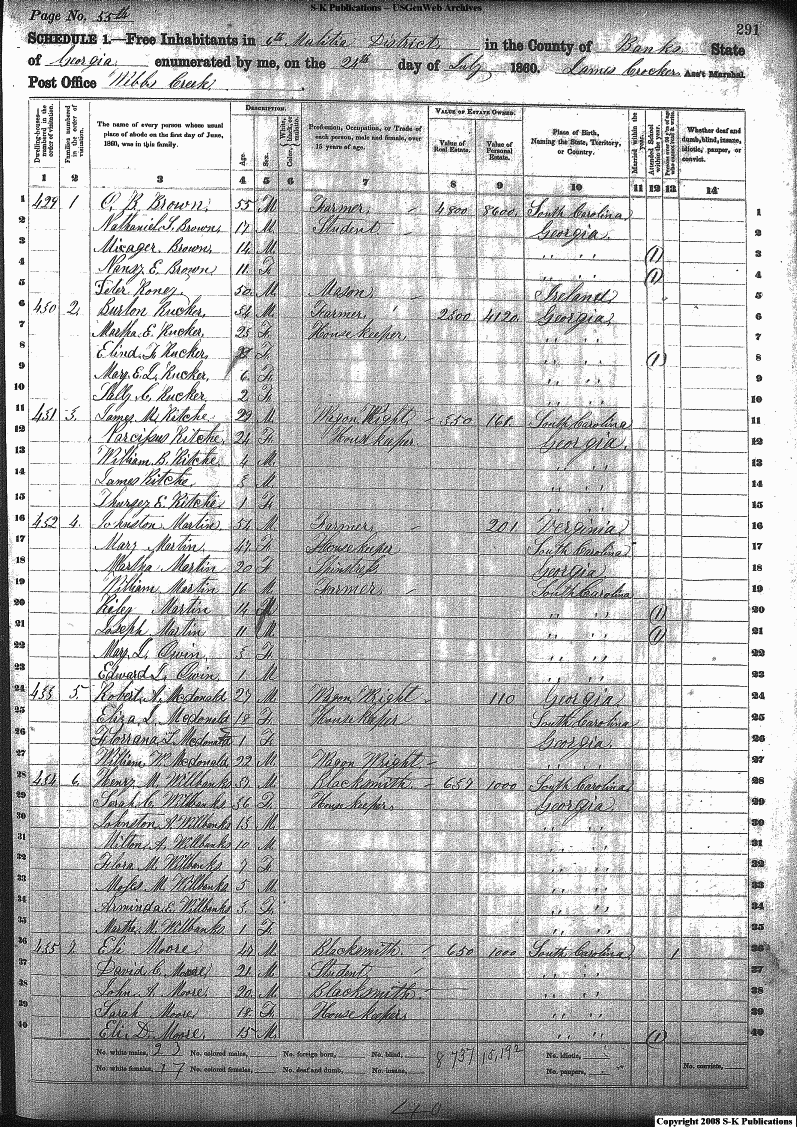 S-K Publications – USGenWeb Archives
Page No. 55th
291
SCHEDULE 1.—Free Inhabitants in 6th Malitia District in the County of Banks State
of Georgia enumerated by me, on the 24th day of July 1860. James Crocker Ass't Marshal.
Post Office Webbs Creek
Dwelling-houses—numbered in the order of visitation.
Families numbered in the order of visitation.
The name of every person whose usual place of abode on the first day of June, 1860, was in this family.
DESCRIPTION.
Age.
Sex.
Color, White, black, or mulatto.
Profession, Occupation, or Trade of each person, male and female, over 15 years of age.
VALUE OF ESTATE OWNED.
Value of Real Estate.
Value of Personal Estate.
Place of Birth, Naming the State, Territory, or Country.
Married within the year.
Attended School within the year.
Whether deaf and dumb, blind, insane, idiotic, pauper, or convict.
1 2 3 4 5 6 7 8 9 10 11 12 13 14
1 429 1 Brown 55 M. Farmer 4800 8600 South Carolina 1
2 Nathaniel Brown 17 M. Student Georgia 2
3 Micager Brown 14 M. " " (1) 3
4 Nancy E. Brown 11 F. " " (1) 4
5 Peter 50 M. Mason Ireland 5
6 430 2 Burton Rucker 54 M. Farmer 2500 4120 Georgia 6
7 Martha E. Rucker 25 F. House keeper " " 7
8 Rucker F. " " (1) 8
9 Mary E. L. Rucker 6 F. " " 9
10 Sally C. Rucker 2 F. " " 10
11 431 3 James M. Kitche 29 M. Wagon Wright 350 168 South Carolina 11
12 Narcissus Kitche 24 F. House keeper Georgia 12
13 William B. Kitche 4 M. " " 13
14 James Kitche 3 M. " " 14
15 E. Kitche 1 F. " " 15
16 432 4 Johnston Martin 54 M. Farmer 201 Verginia 16
17 Mary Martin 47 F. House keeper South Carolina 17
18 Martha Martin 20 F. Georgia 18
19 William Martin 16 M. Farmer South Carolina 19
20 Riley Martin 14 M. " " (1) 20
21 Joseph Martin 11 M. " " (1) 21
22 Mary L. Owin 3 F. " " 22
23 Edward L. Owin 1 M. " " 23
24 433 5 Robert A. Mcdonald 27 M. Wagon Wright 110 Georgia 24
25 Eliza L. Mcdonald 18 F. House keeper South Carolina 25
26 Mcdonald 1 F. Georgia 26
27 William W. Mcdonald 22 M. Wagon Wright " " 27
28 434 6 Henry M. Willbanks 37 M. Blacksmith 657 1000 South Carolina 28
29 Sarah C. Willbanks 36 F. House keeper Georgia 29
30 Johnston A. Willbanks 13 M. " " 30
31 Milton A. Willbanks 10 M. " " 31
32 Flora M. Willbanks 7 F. " " 32
33 Moses M. Willbanks 5 M. " " 33
34 Arminda E. Willbanks 3 F. " " 34
35 Martha M. Willbanks 1 F. " " 35
36 435 7 Eli Moore 47 M. Blacksmith 650 1000 South Carolina 1 36
37 David C. Moore 21 M. Student " " 37
38 John A. Moore 20 M. Blacksmith " " 38
39 Sarah Moore 18 F. House keeper " " 39
40 Eli D. Moore 15 M. " " (1) 40
No. white males, 23 No. colored males, No. foreign born, No. blind, No. idiotic,
No. white females, 17 No. colored females, No. deaf and dumb, No. insane, No. paupers, No. convicts,
40
Copyright 2008 S-K Publications